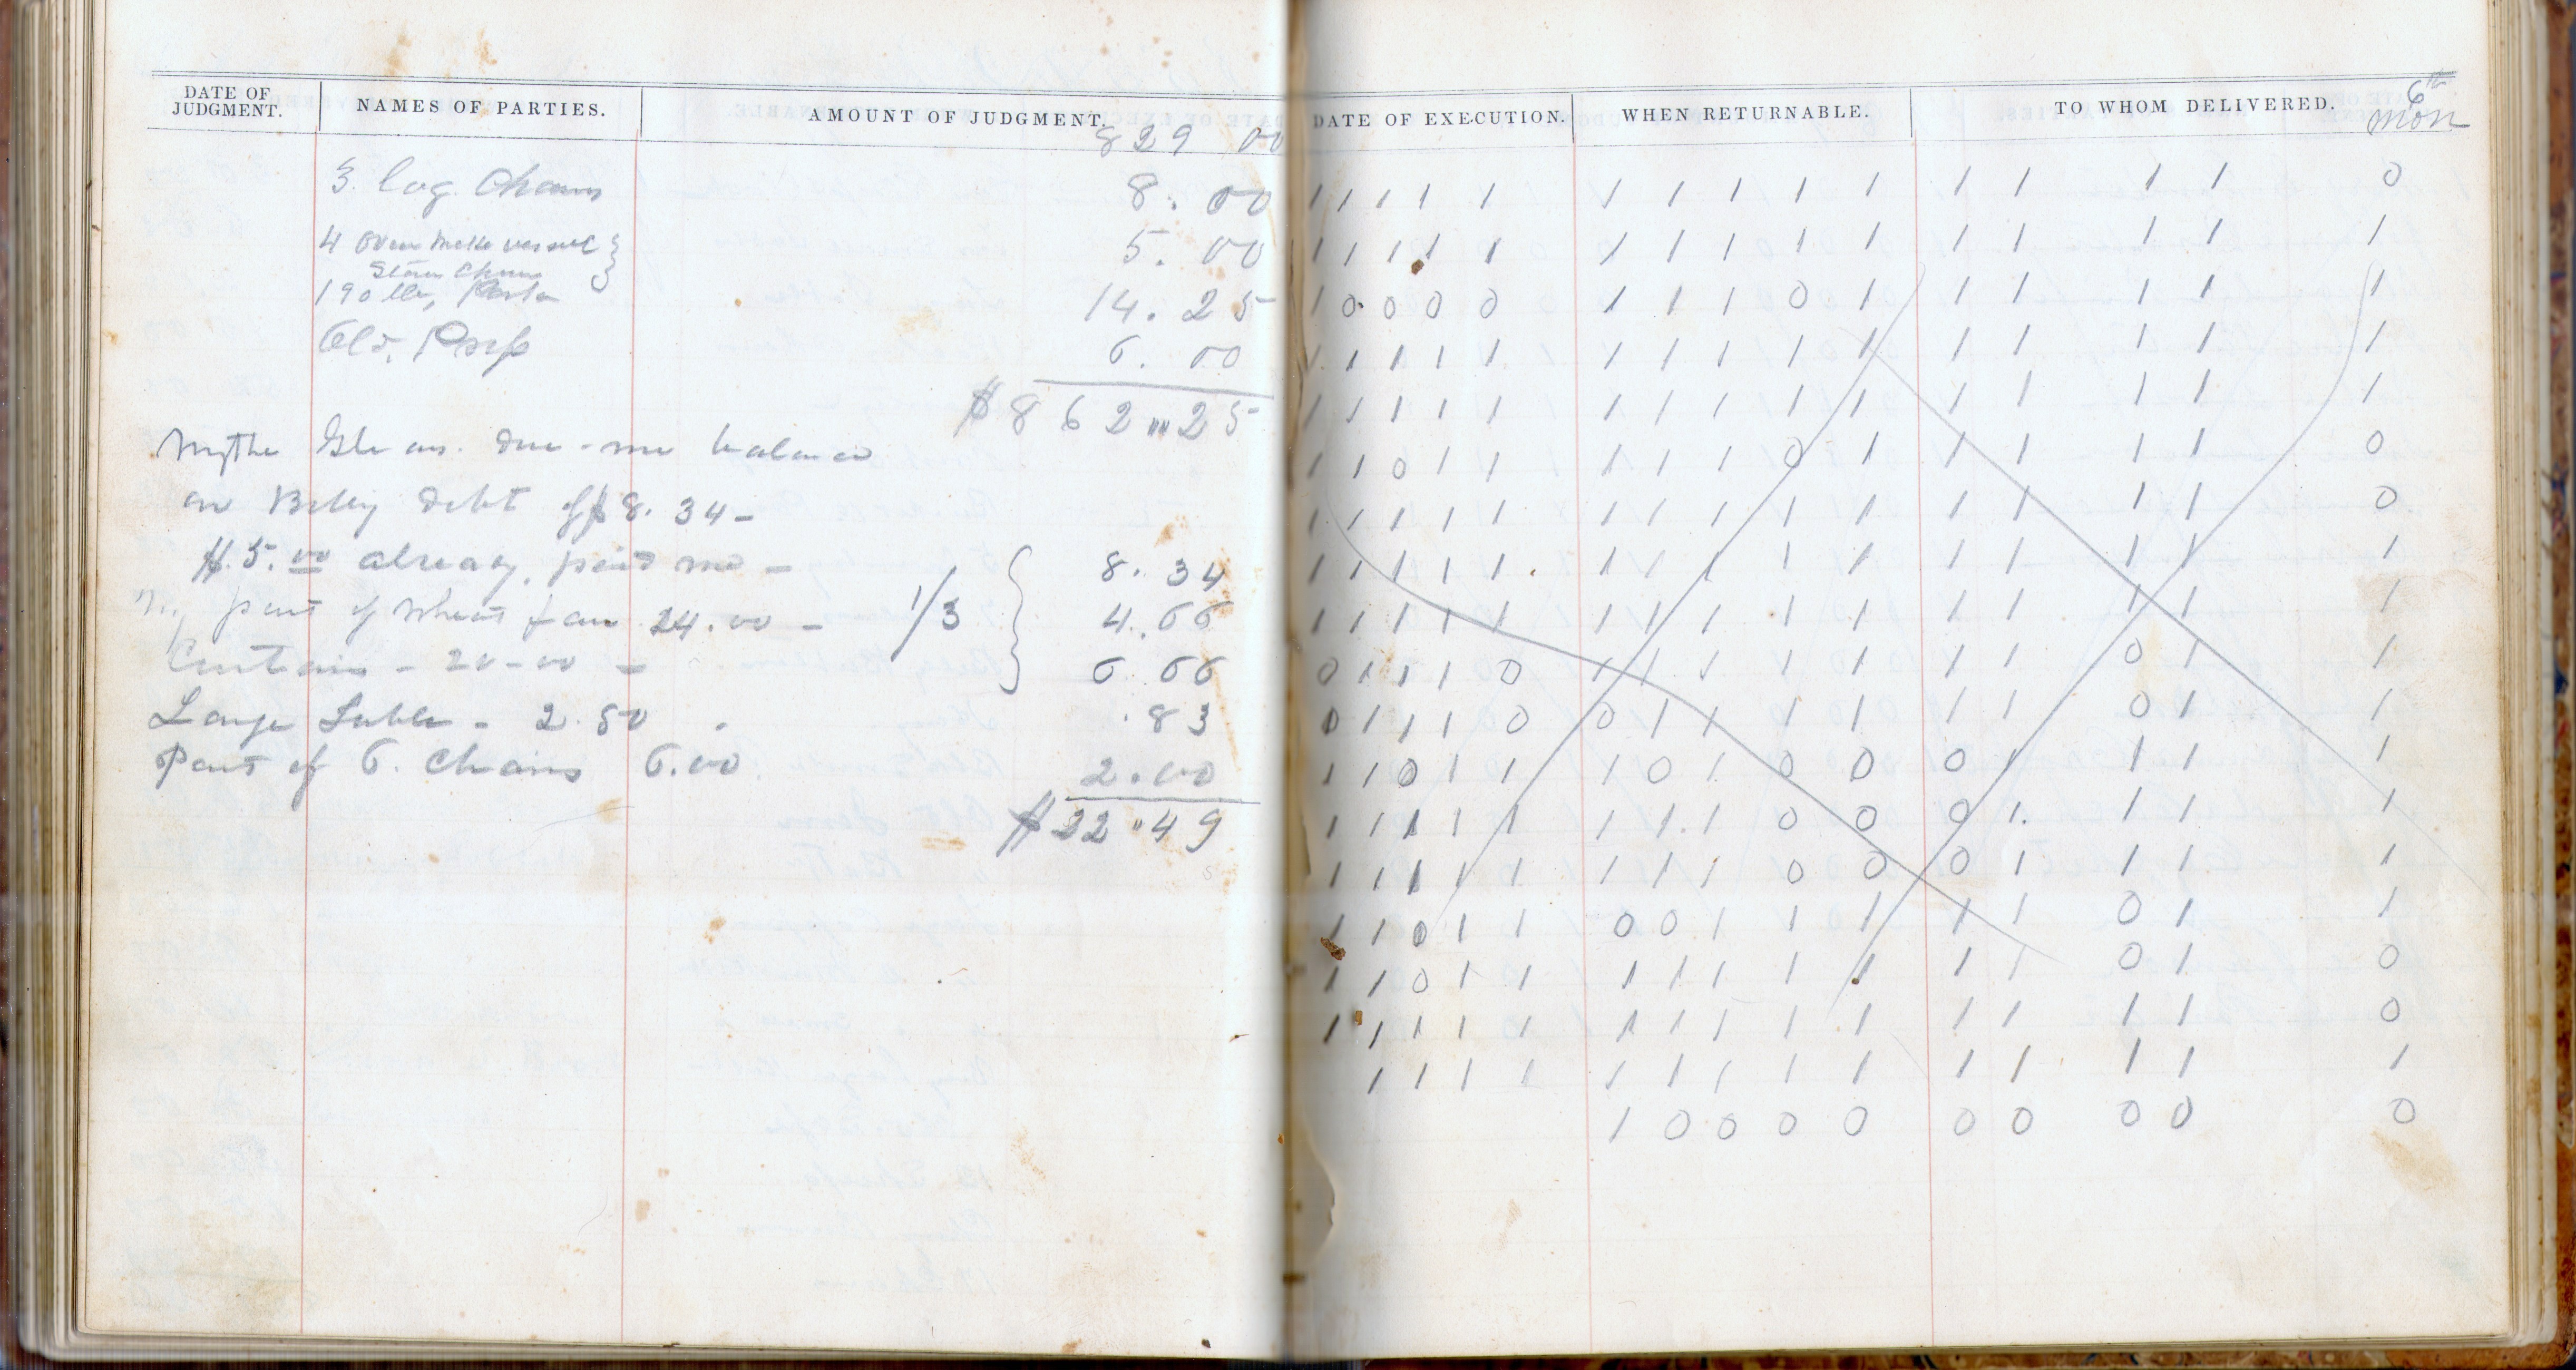 DATE OF JUDGMENT. NAMES OF PARTIES. AMOUNT OF JUDGMENT.
829 00
3. Log Chains 8. 00
4 5. 00
190 14. 25
Old. 6. 00
$862.25
due me balance
on debt of $8. 34 -
$.5.00 already, paid me - 8. 34
part of Wheat fan 24.00 - 1/3 4.66
20-00 - 6.66
Large Table - 2.50 .83
Part of 6. Chairs 6.00 2.00
$22.49
DATE OF EXECUTION. WHEN RETURNABLE. TO WHOM DELIVERED. 6th Mon
1 1 1 1 1 1 1 1 1 1 1 1 1 1 0
1 1 1 1 1 1 1 1 1 1 1 1 1 1 1
1 0 0 0 0 1 1 1 0 1 1 1 1 1 1
1 1 1 1 1 1 1 1 1 1 1 1 1 1 1
1 1 1 1 1 1 1 1 1 1 1 1 1 1 1
1 1 0 1 1 1 1 1 0 1 1 1 1 1 0
1 1 1 1 1 1 1 1 1 1 1 1 1 1 0
1 1 1 1 1 1 1 1 1 1 1 1 1 1 1
1 1 1 1 1 1 1 1 1 1 1 1 1 1 1
0 1 1 1 0 1 1 1 1 1 1 1 0 1 1
0 1 1 1 0 0 1 1 1 1 1 1 0 1 1
1 1 0 1 1 1 0 1 0 0 0 1 1 1 1
1 1 1 1 1 1 1 1 0 0 0 1 1 1 1
1 1 1 1 1 1 1 1 0 0 0 1 1 1 1
1 1 0 1 1 0 0 1 1 1 1 1 0 1 1
1 1 0 1 1 1 1 1 1 1 1 1 0 1 0
1 1 1 1 1 1 1 1 1 1 1 1 1 1 0
1 1 1 1 1 1 1 1 1 1 1 1 1 1
1 0 0 0 0 0 0 0 0 0